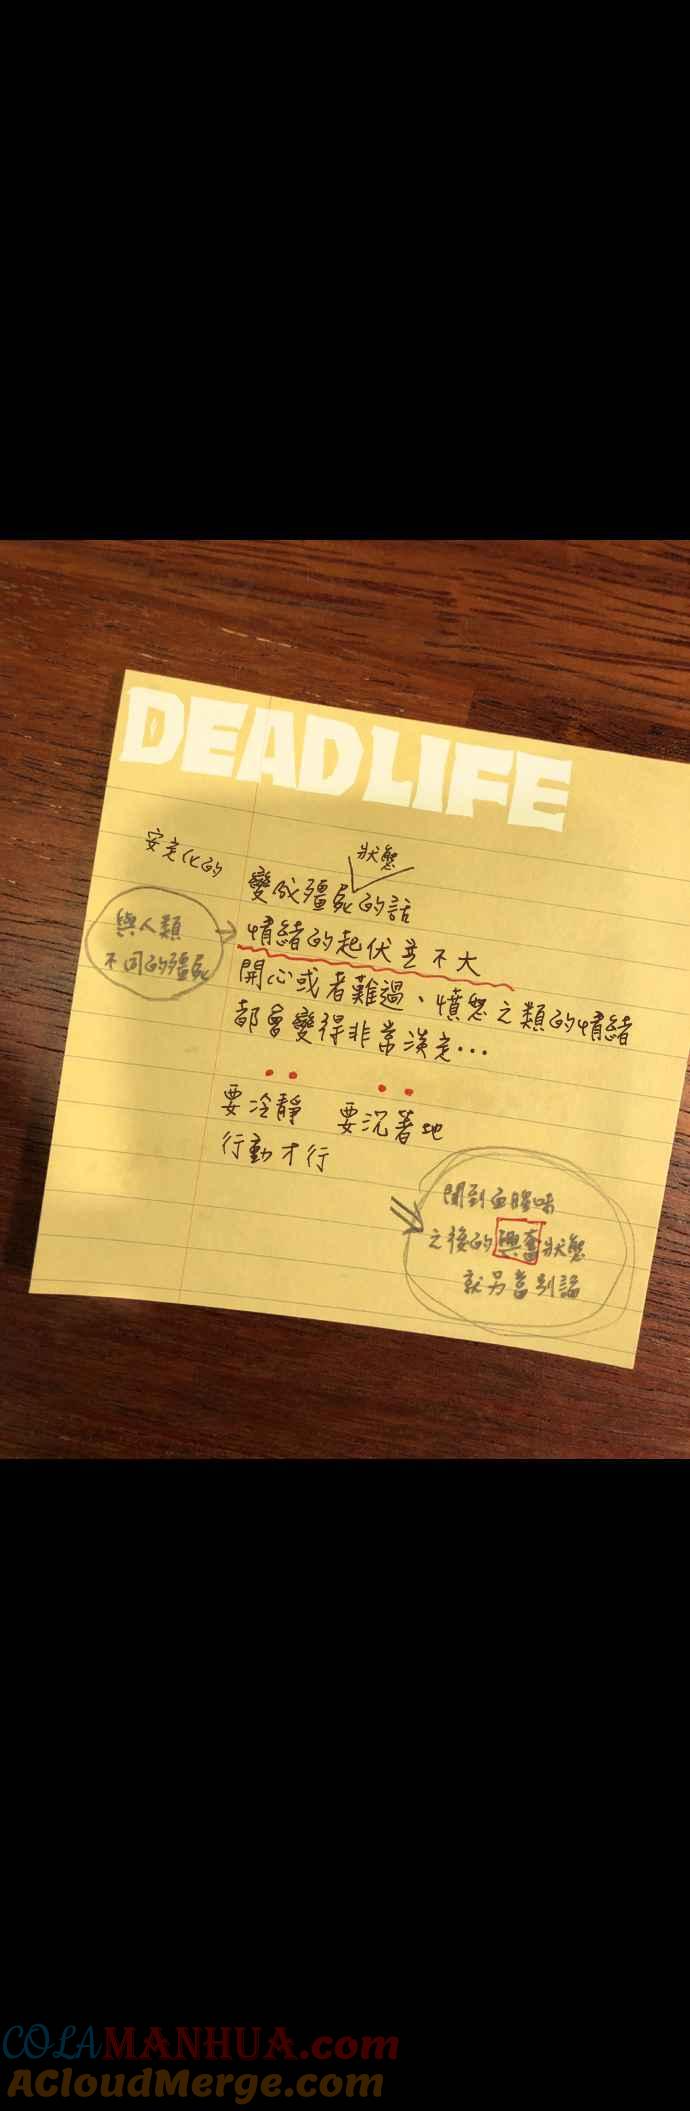 DEAD LIFE
安定化的
狀態
變成殭屍的話
與人類
不同的殭屍
情緒的起伏並不大
開心或者難過、憤怒之類的情緒
都會變得非常淡定…
要冷靜 要沉著地
行動才行
聞到血腥味
之後的興奮狀態
就另當別論
COLAMANHUA.com
ACloudMerge.com